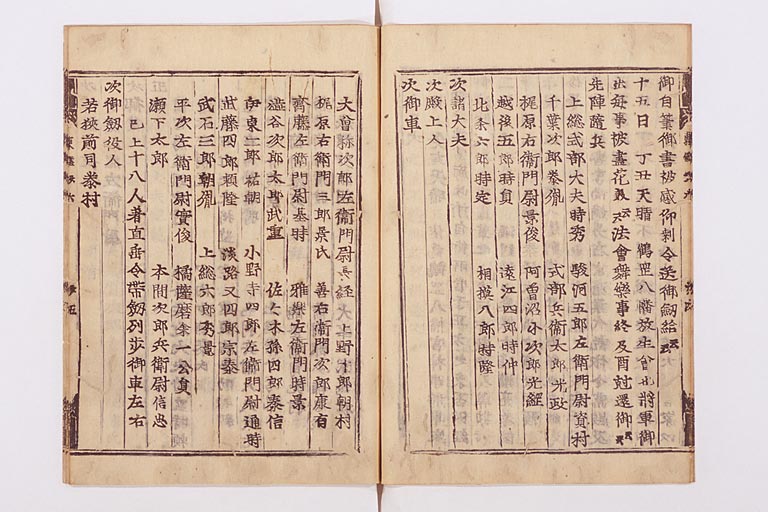 御自筆御書被感仰剰令送御劔給云云
十五日丁丑天晴鶴岡八幡放生會也將軍御
出毎事被盡花美云云法會舞樂事終及酉尅還御云云
先陣隨兵
上総式部大夫時秀　駿河五郎左衛門尉資村
千葉次郎泰胤　式部兵衛太郎光政
梶原右衛門尉景俊　阿曽沼小次郎光綱
越後五郎時員　遠江四郎時仲
北条六郎時定　相摸八郎時隆
次諸大夫
次殿上人
次御車
大曽祢次郎左衛門尉長経　大上野十郎朝村
梶原右衛門三郎景氏　善右衛門次郎康有
齊藤左衛門尉基時　雅樂左衛門時景
澁谷次郎太郎武重　佐々木孫四郎泰信
伊東二郎祐朝　小野寺四郎左衛門尉通時
武藤四郎頼隆　淡路又四郎宗泰
武石三郎朝胤　上総六郎秀景
平次左衛門尉實俊　橘薩摩余一公員
瀬下太郎　本間次郎兵衛尉信忠
已上十八人着直垂令帶劔列歩御車左右
次御劔役人
若狹前司泰村